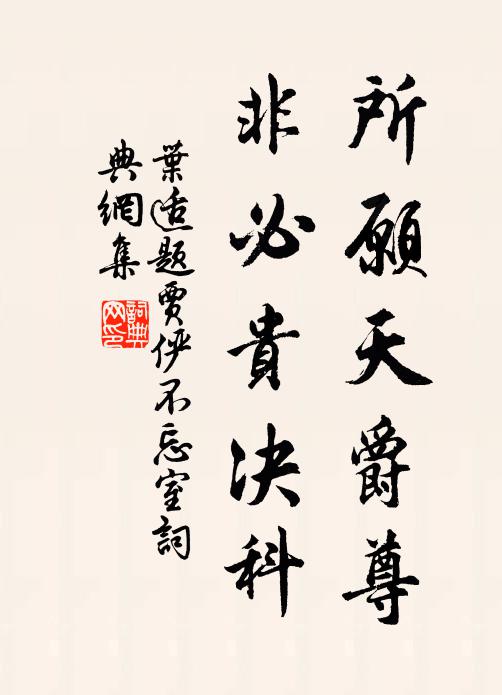 所願天爵尊
非必貴決科
葉適題賈俨不忘室詞
典網集
詞典網印